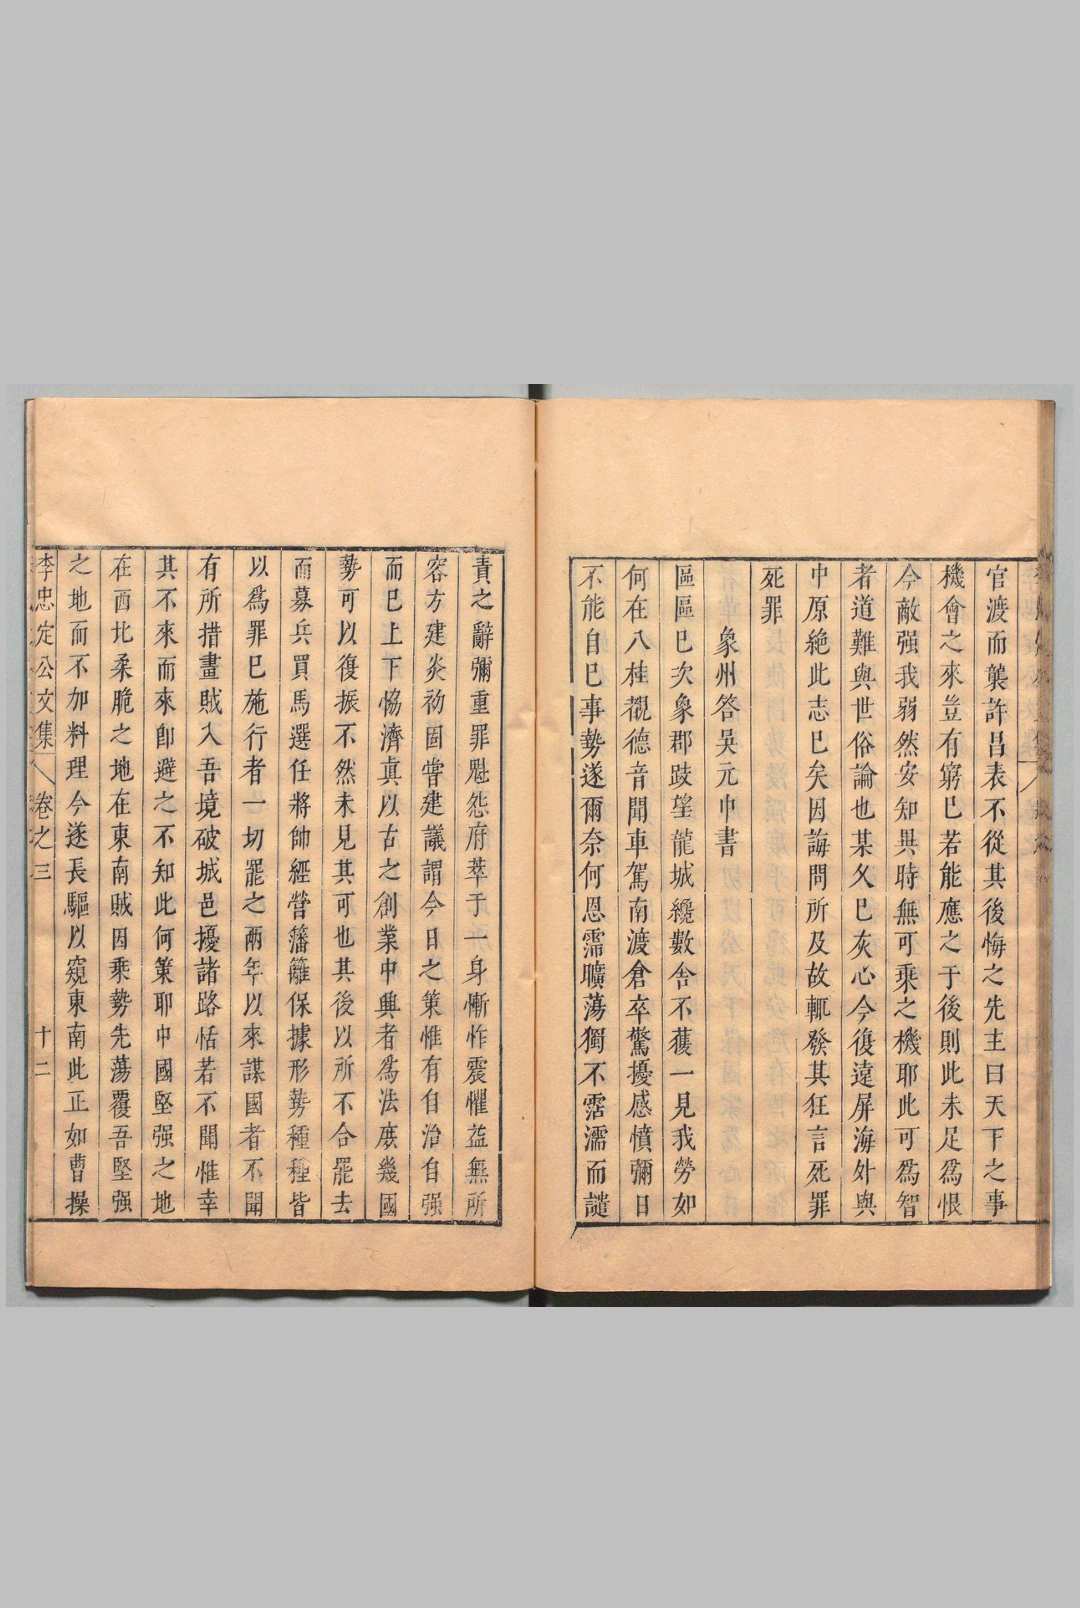 官渡而襲許昌表不從其後悔之先主曰天下之事
機會之來豈有窮巳若能應之于後則此未足爲恨
今敵强我弱然安知異時無可乘之機耶此可爲智
者道難與世俗論也某久巳灰心今復遠屏海外與
中原絶此志巳矣因誨問所及故輒發其狂言死罪
死罪
象州答吳元中書
區區巳次象郡跂望龍城纔數舍不獲一見我勞如
何在八桂覩德音聞車駕南渡倉卒驚擾感憤彌日
不能自巳事勢遂爾奈何恩霈曠蕩獨不霑濡而譴
責之辭彌重罪魁怨府萃于一身慚怍震懼益無所
容方建炎初固嘗建議謂今日之策惟有自治自强
而巳上下恊濟真以古之創業中興者爲法庶幾國
勢可以復振不然未見其可也其後以所不合罷去
而募兵買馬選任將帥經營藩籬保據形勢種種皆
以爲罪巳施行者一切罷之兩年以來謀國者不聞
有所措畫賊入吾境破城邑擾諸路恬若不聞惟幸
其不來而來卽避之不知此何策耶中國堅强之地
在西北柔脆之地在東南賊因乘勢先蕩覆吾堅强
之地而不加料理今遂長驅以窺東南此正如曹操
李忠定公文集 卷之三 十二